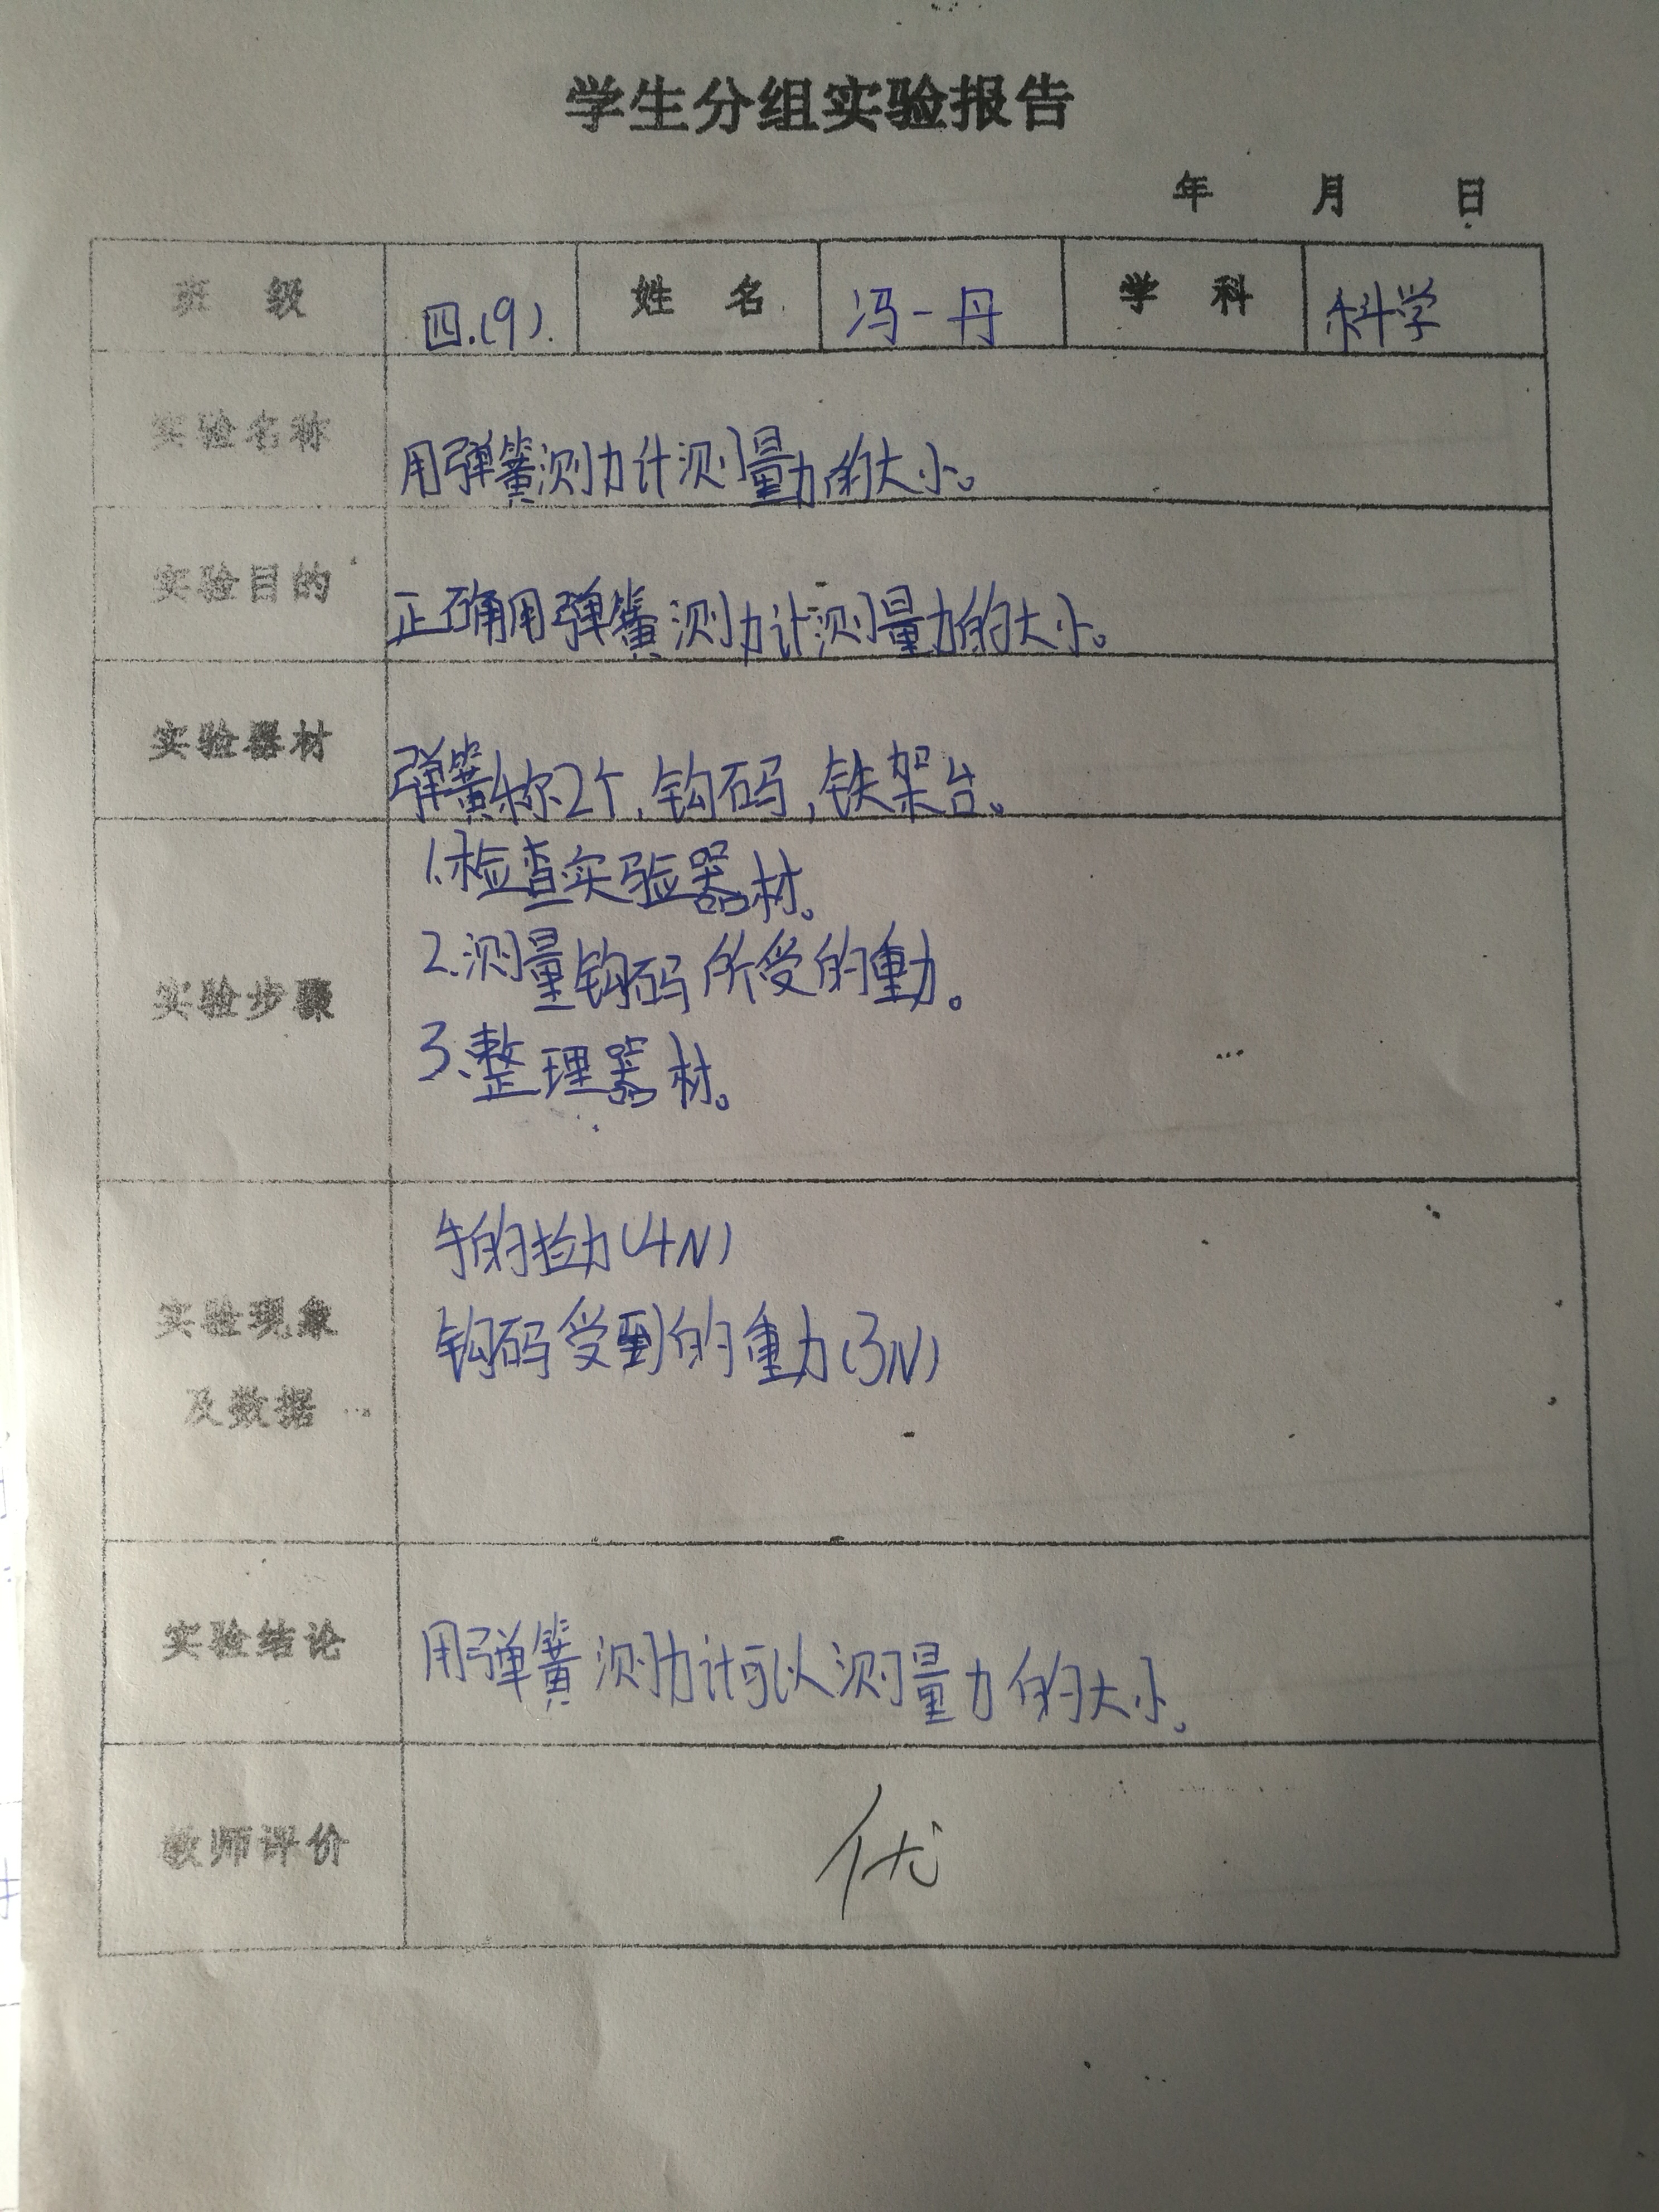 学生分组实验报告
年 月 日
班 级 四.(9). 姓 名 冯一丹 学 科 科学
实验名称 用弹簧测力计测量力的大小。
实验目的 正确用弹簧测力计测量力的大小。
实验器材 弹簧称2个,钩码,铁架台。
实验步骤
1.检查实验器材。
2.测量钩码所受的重力。
3.整理器材。
实验现象
及数据
手的拉力(4N)
钩码受到的重力(3N)
实验结论 用弹簧测力计可以测量力的大小。
教师评价 优